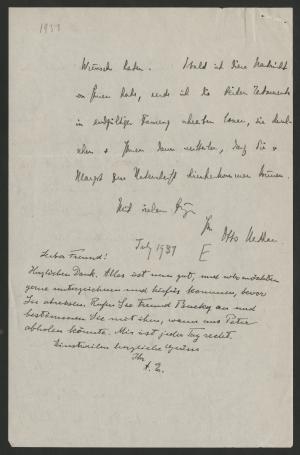 1937
Wunsch haben. Sobald ich Ihre Nachricht
von Ihnen habe, werde ich die beiden Testamente
in endgültiger Fassung schreiben lassen, sie
und Ihnen dann mitteilen, daß Sie &
Margot zur Unterschrift können.
Mit vielen Grüßen
Ihr Otto Nathan
July 1937
E
Lieber Freund!
Herzlichen Dank. Alles ist nun gut, und wir möchten
gerne unterzeichnen und hiefür kommen, bevor
Sie abreisen. Rufen Sie Freund Bucky an und
bestimmen Sie mit ihm, wann uns Peter
abholen könnte. Mir ist jeder Tag recht.
Einstweilen herzliche Grüsse
Ihr
A. E.